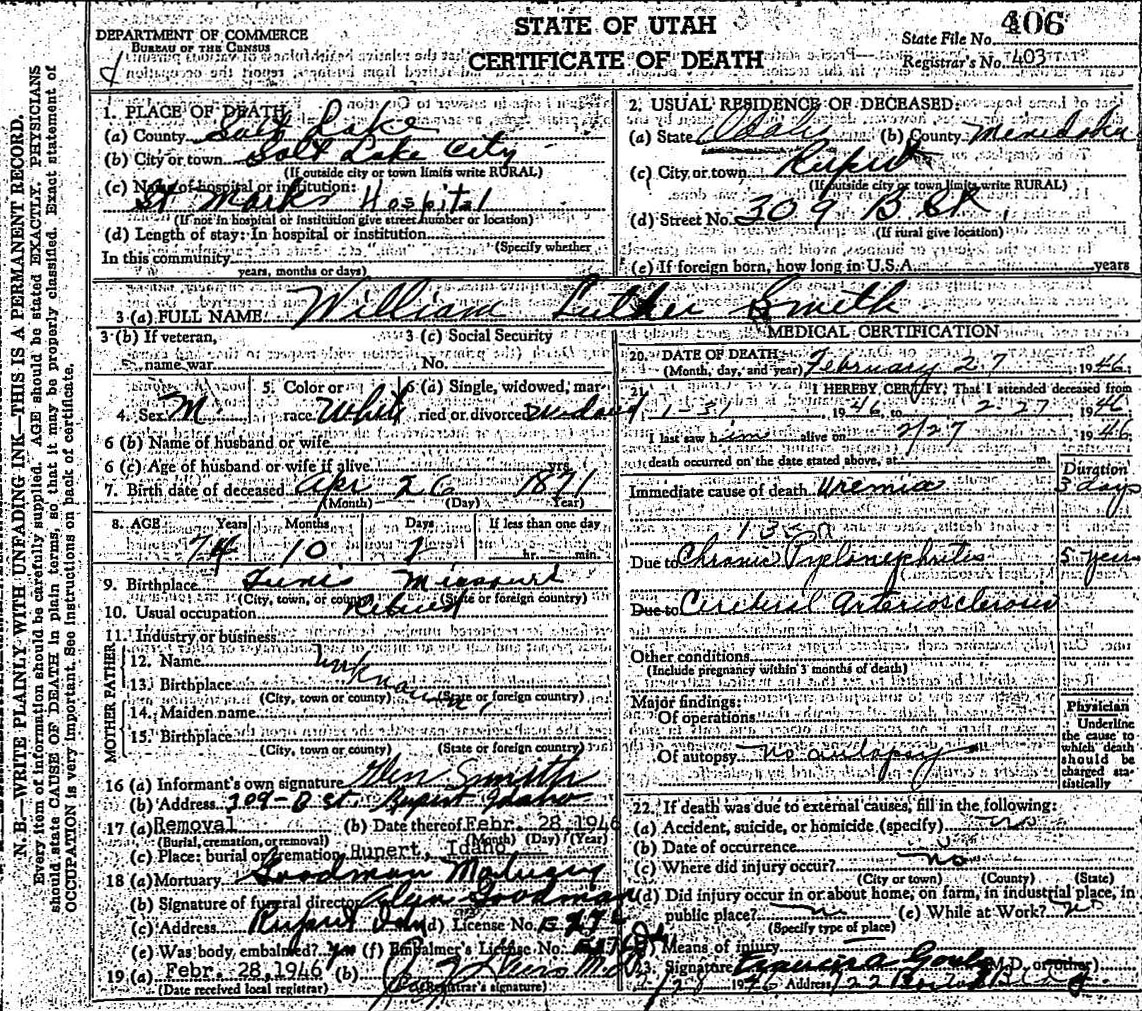 STATE OF UTAH
CERTIFICATE OF DEATH
DEPARTMENT OF COMMERCE
BUREAU OF THE CENSUS
State File No. 406
Registrar's No. 403
N. B.—WRITE PLAINLY WITH UNFADING INK—THIS IS A PERMANENT RECORD.
Every item of information should be carefully supplied. AGE should be stated EXACTLY. PHYSICIANS
should state CAUSE OF DEATH in plain terms, so that it may be properly classified. Exact statement of
OCCUPATION is very important. See instructions on back of certificate.
1. PLACE OF DEATH
(a) County Salt Lake
(b) City or town Salt Lake City
(If outside city or town limits write RURAL)
(c) Name of hospital or institution:
St Marks Hospital
(If not in hospital or institution give street number or location)
(d) Length of stay: In hospital or institution
(Specify whether
In this community
years, months or days)
2. USUAL RESIDENCE OF DECEASED:
(a) State Idaho (b) County Minidoka
(c) City or town Rupert
(If outside city or town limits write RURAL)
(d) Street No. 309 B St
(If rural give location)
(e) If foreign born, how long in U.S.A. years
3 (a) FULL NAME William Luther Smith
3 (b) If veteran, name war
3 (c) Social Security No.
4. Sex M.
5. Color or race White
6 (a) Single, widowed, married or divorced Widowed
6 (b) Name of husband or wife
6 (c) Age of husband or wife if alive yrs.
7. Birth date of deceased Apr 26 1871
(Month) (Day) (Year)
8. AGE Years Months Days If less than one day
74 10 hr. min.
9. Birthplace Tunis Missouri
(City, town, or county) (State or foreign country)
10. Usual occupation Retired
11. Industry or business
FATHER
12. Name Unknown
13. Birthplace
(City, town or county) (State or foreign country)
MOTHER
14. Maiden name
15. Birthplace
(City, town or county) (State or foreign country)
16 (a) Informant's own signature Glen Smith
(b) Address 309-B St. Rupert Idaho
17 (a) Removal (b) Date thereof Febr. 28, 1946
(Burial, cremation, or removal) (Month) (Day) (Year)
(c) Place: burial or cremation Rupert, Idaho
18 (a) Mortuary Goodman Mortuary
(b) Signature of funeral director Goodman
(c) Address Rupert Ida (d) License No.
(e) Was body embalmed? yes (f) Embalmer's License No.
19 (a) Febr. 28, 1946 (b) M.D.
(Date received local registrar) (Registrar's signature)
MEDICAL CERTIFICATION
20. DATE OF DEATH
(Month, day, and year) February 27, 1946
21. I HEREBY CERTIFY, That I attended deceased from
1-31, 1946 to 2-27 1946
I last saw him alive on 2/27, 1946
death occurred on the date stated above, at m.
Duration
Immediate cause of death Uremia 3 days
Due to Chronic Pyelonephritis 5 years
Due to Cerebral Arteriosclerosis
Other conditions
(Include pregnancy within 3 months of death)
Major findings:
Of operations
Of autopsy no autopsy
Physician
Underline
the cause to
which death
should be
charged sta-
tistically
22. If death was due to external causes, fill in the following:
(a) Accident, suicide, or homicide (specify) no
(b) Date of occurrence
(c) Where did injury occur? no
(City or town) (County) (State)
(d) Did injury occur in or about home, on farm, in industrial place, in
public place? no (e) While at Work? no
(Specify type of place)
Means of injury
23. Signature (M.D. or other)
2/28 1946 Address